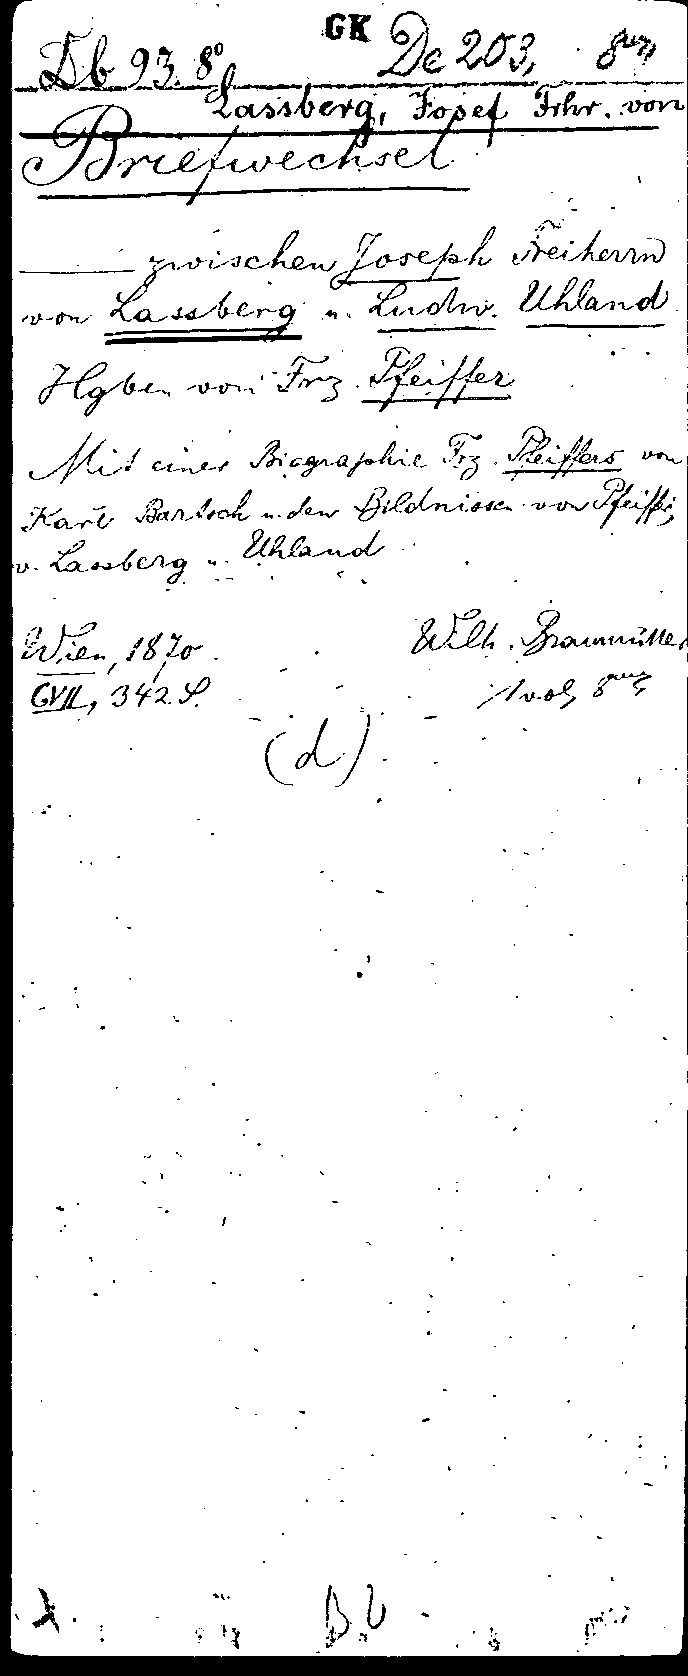 GK
Db 93. 8° De 203, 8
Lassberg, Josef Frhr. von
Briefwechsel
zwischen Joseph Freiherrn
von Lassberg u. Ludw. Uhland
Hgben von Frz. Pfeiffer
Mit einer Biographie Frz. Pfeiffers von
Karl Bartsch u. den Bildnissen von Pfeiffer,
v. Lassberg u. Uhland
Wien, 1870. Wilh. Braumüller
CVII, 342 S. 1 vol, 8
(d)